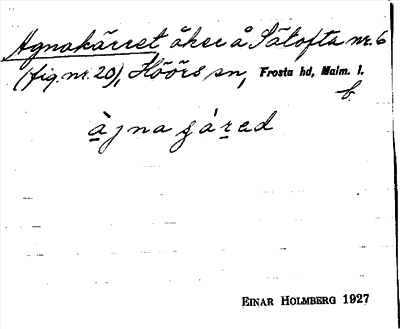 Agnakärret åker å Sätofta nr. 6
(fig. nr. 20), Höörs sn, Frosta hd, Malm. l.
b.
àjna sáred
EINAR HOLMBERG 1927